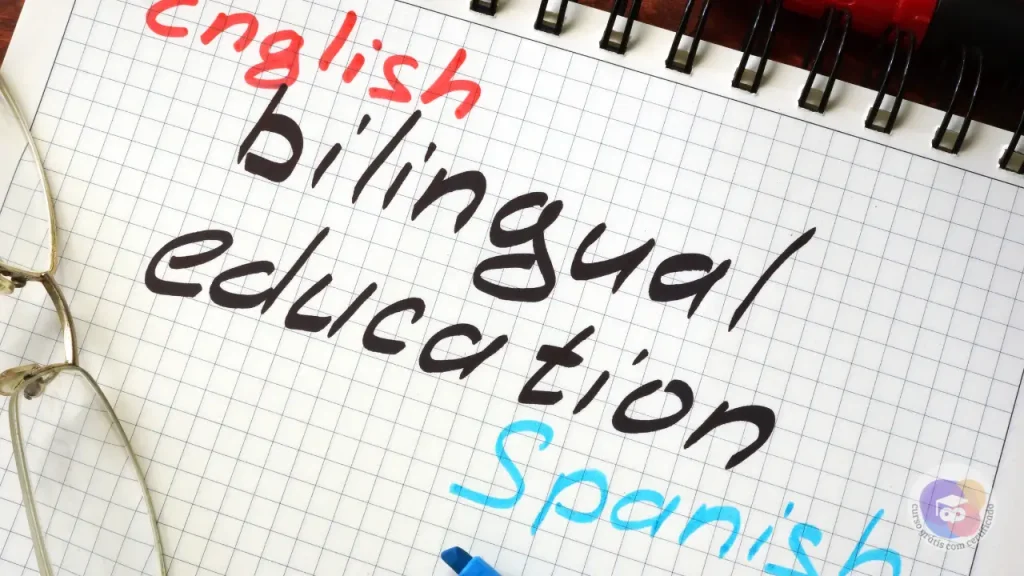 English
bilingual
education
Spanish
curso grátis com certificado